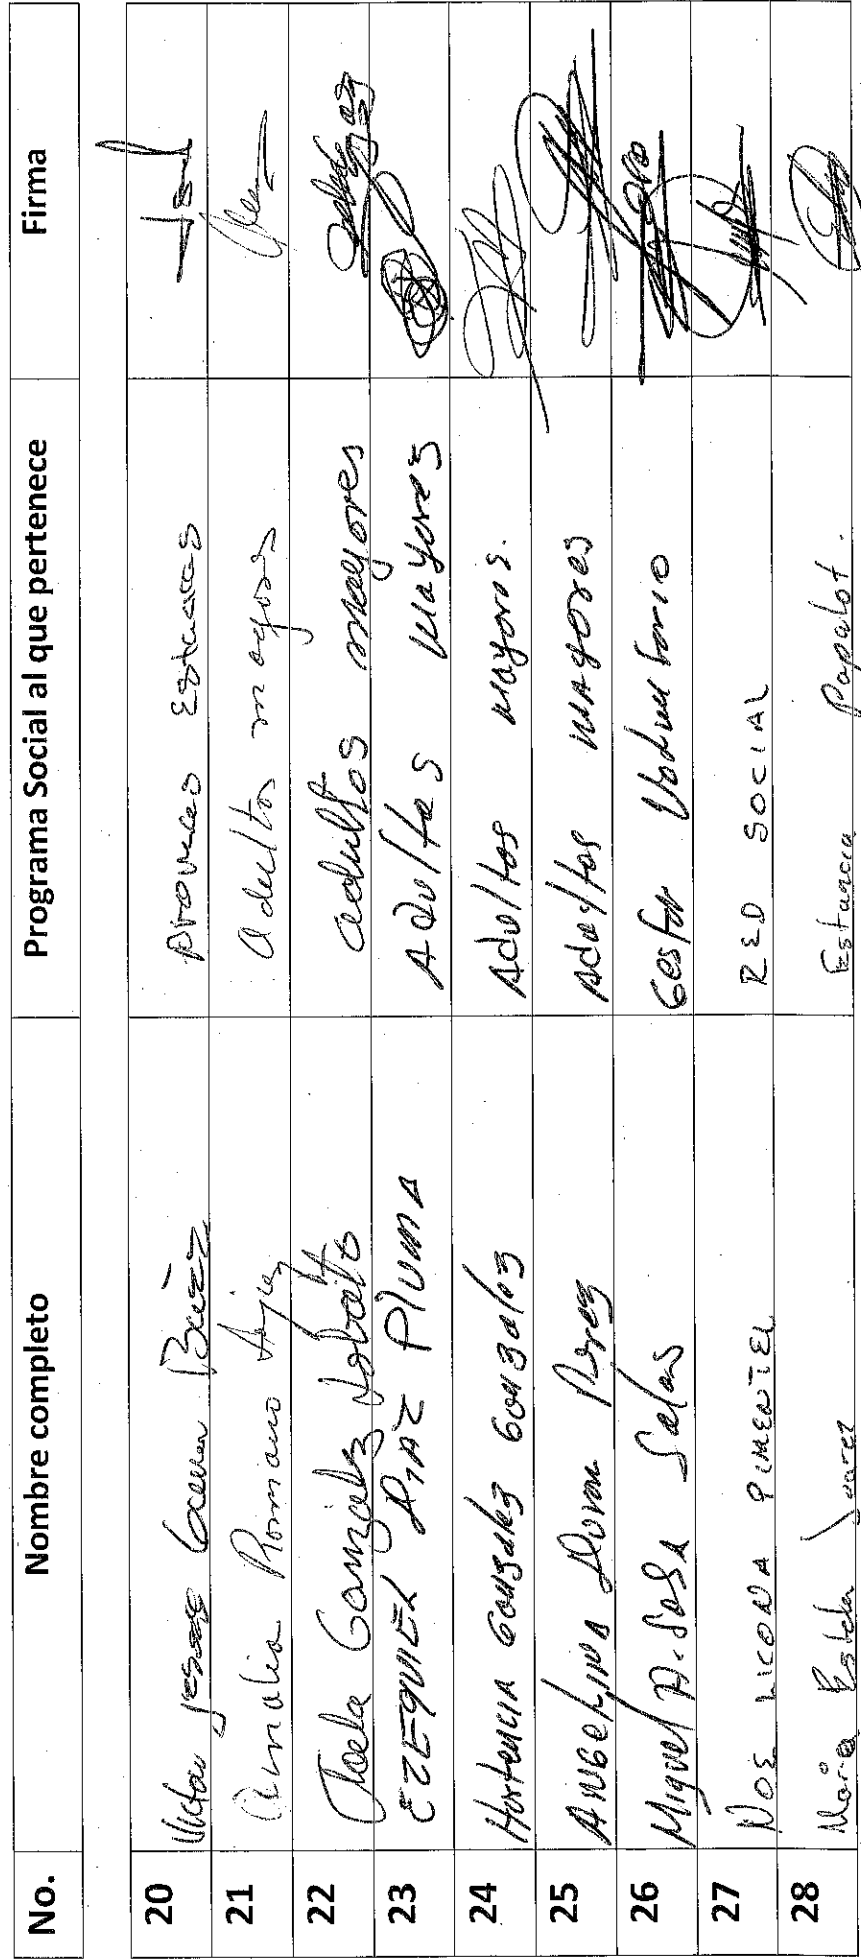 No. Nombre completo Programa Social al que pertenece Firma
20 Victor Baez
21 Amalia adultos mayores
22 Gonzalez adultos mayores
23 EZEQUIEL DIAZ PlUMA Adultos mayores
24 Hortencia Gonzalez Gonzalez Adultos mayores.
25 Angelina Duran Perez Adultos mayores
26 Miguel A. Sosa Salas Gestor Voluntario
27 NOE LICONA PIMENTEL RED SOCIAL
28 Maria Estela Juarez Estancia Papalot.